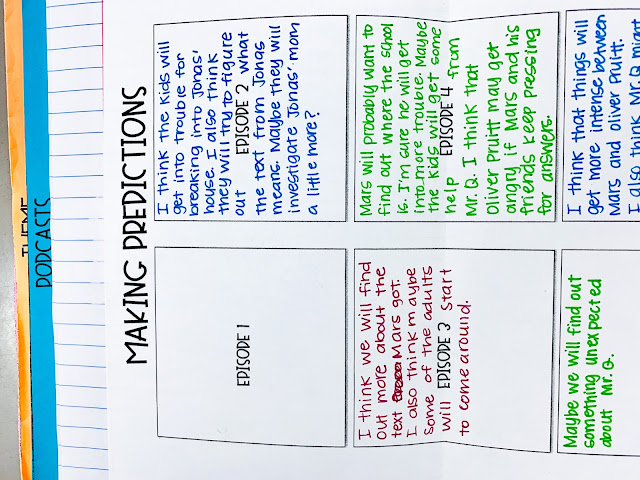 THEME
PODCASTS
MAKING PREDICTIONS
EPISODE 1
I think the kids will
get into trouble for
breaking into Jonas'
house. I also think
they will try to figure
out EPISODE 2 what
the text from Jonas
means. Maybe they will
investigate Jonas' mom
a little more?
I think we will find
out more about the
text Mars got.
I also think maybe
some of the adults
will EPISODE 3 start
to come around.
Mars will probably want to
find out where the school
is. I'm sure he will get
into more trouble. Maybe
the kids will get some
help EPISODE 4 from
Mr. Q. I think that
Oliver Pruitt may get
angry if Mars and his
friends keep pressing
for answers.
Maybe we will find out
something unexpected
about Mr. Q.
I think that things will
get more intense between
Mars and Oliver Pruitt.
I also think Mr. Q might